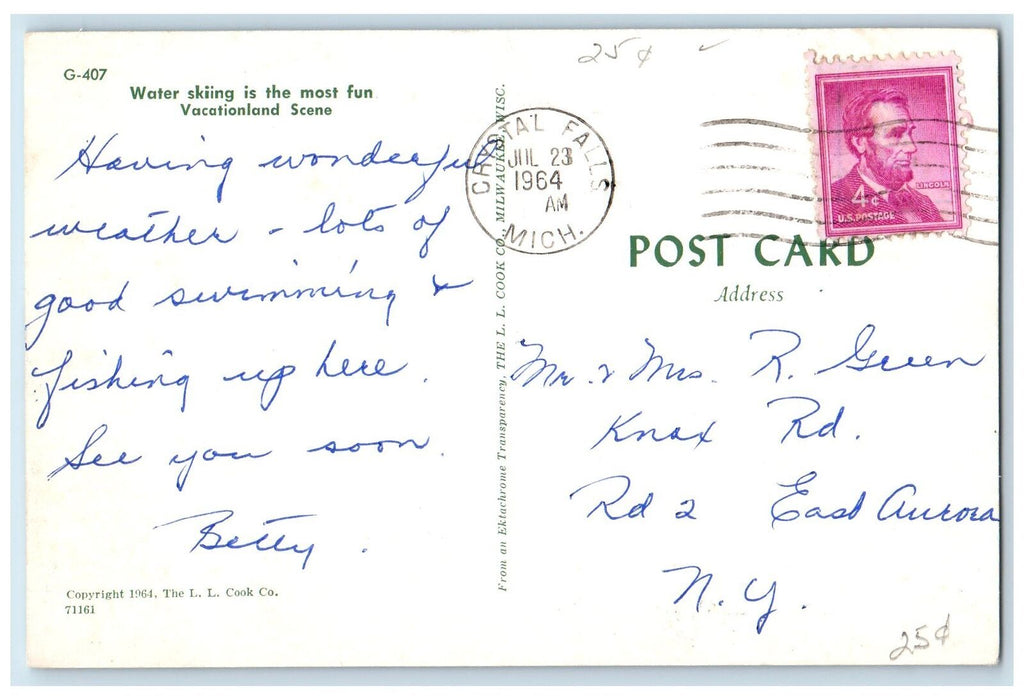 G-407
Water skiing is the most fun
Vacationland Scene
Having wonderful
weather - lots of
good swimming &
fishing up here.
See you soon.
Betty.
Copyright 1964, The L. L. Cook Co.
71161
From an Ektachrome Transparency, THE L. L. COOK CO., MILWAUKEE, WISC.
25¢
CRYSTAL FALLS
JUL 23
1964
AM
MICH.
LINCOLN
4¢
U.S. POSTAGE
POST CARD
Address
Mr. & Mrs. R. Green
Knox Rd.
Rd 2 East Aurora
N.Y.
25¢